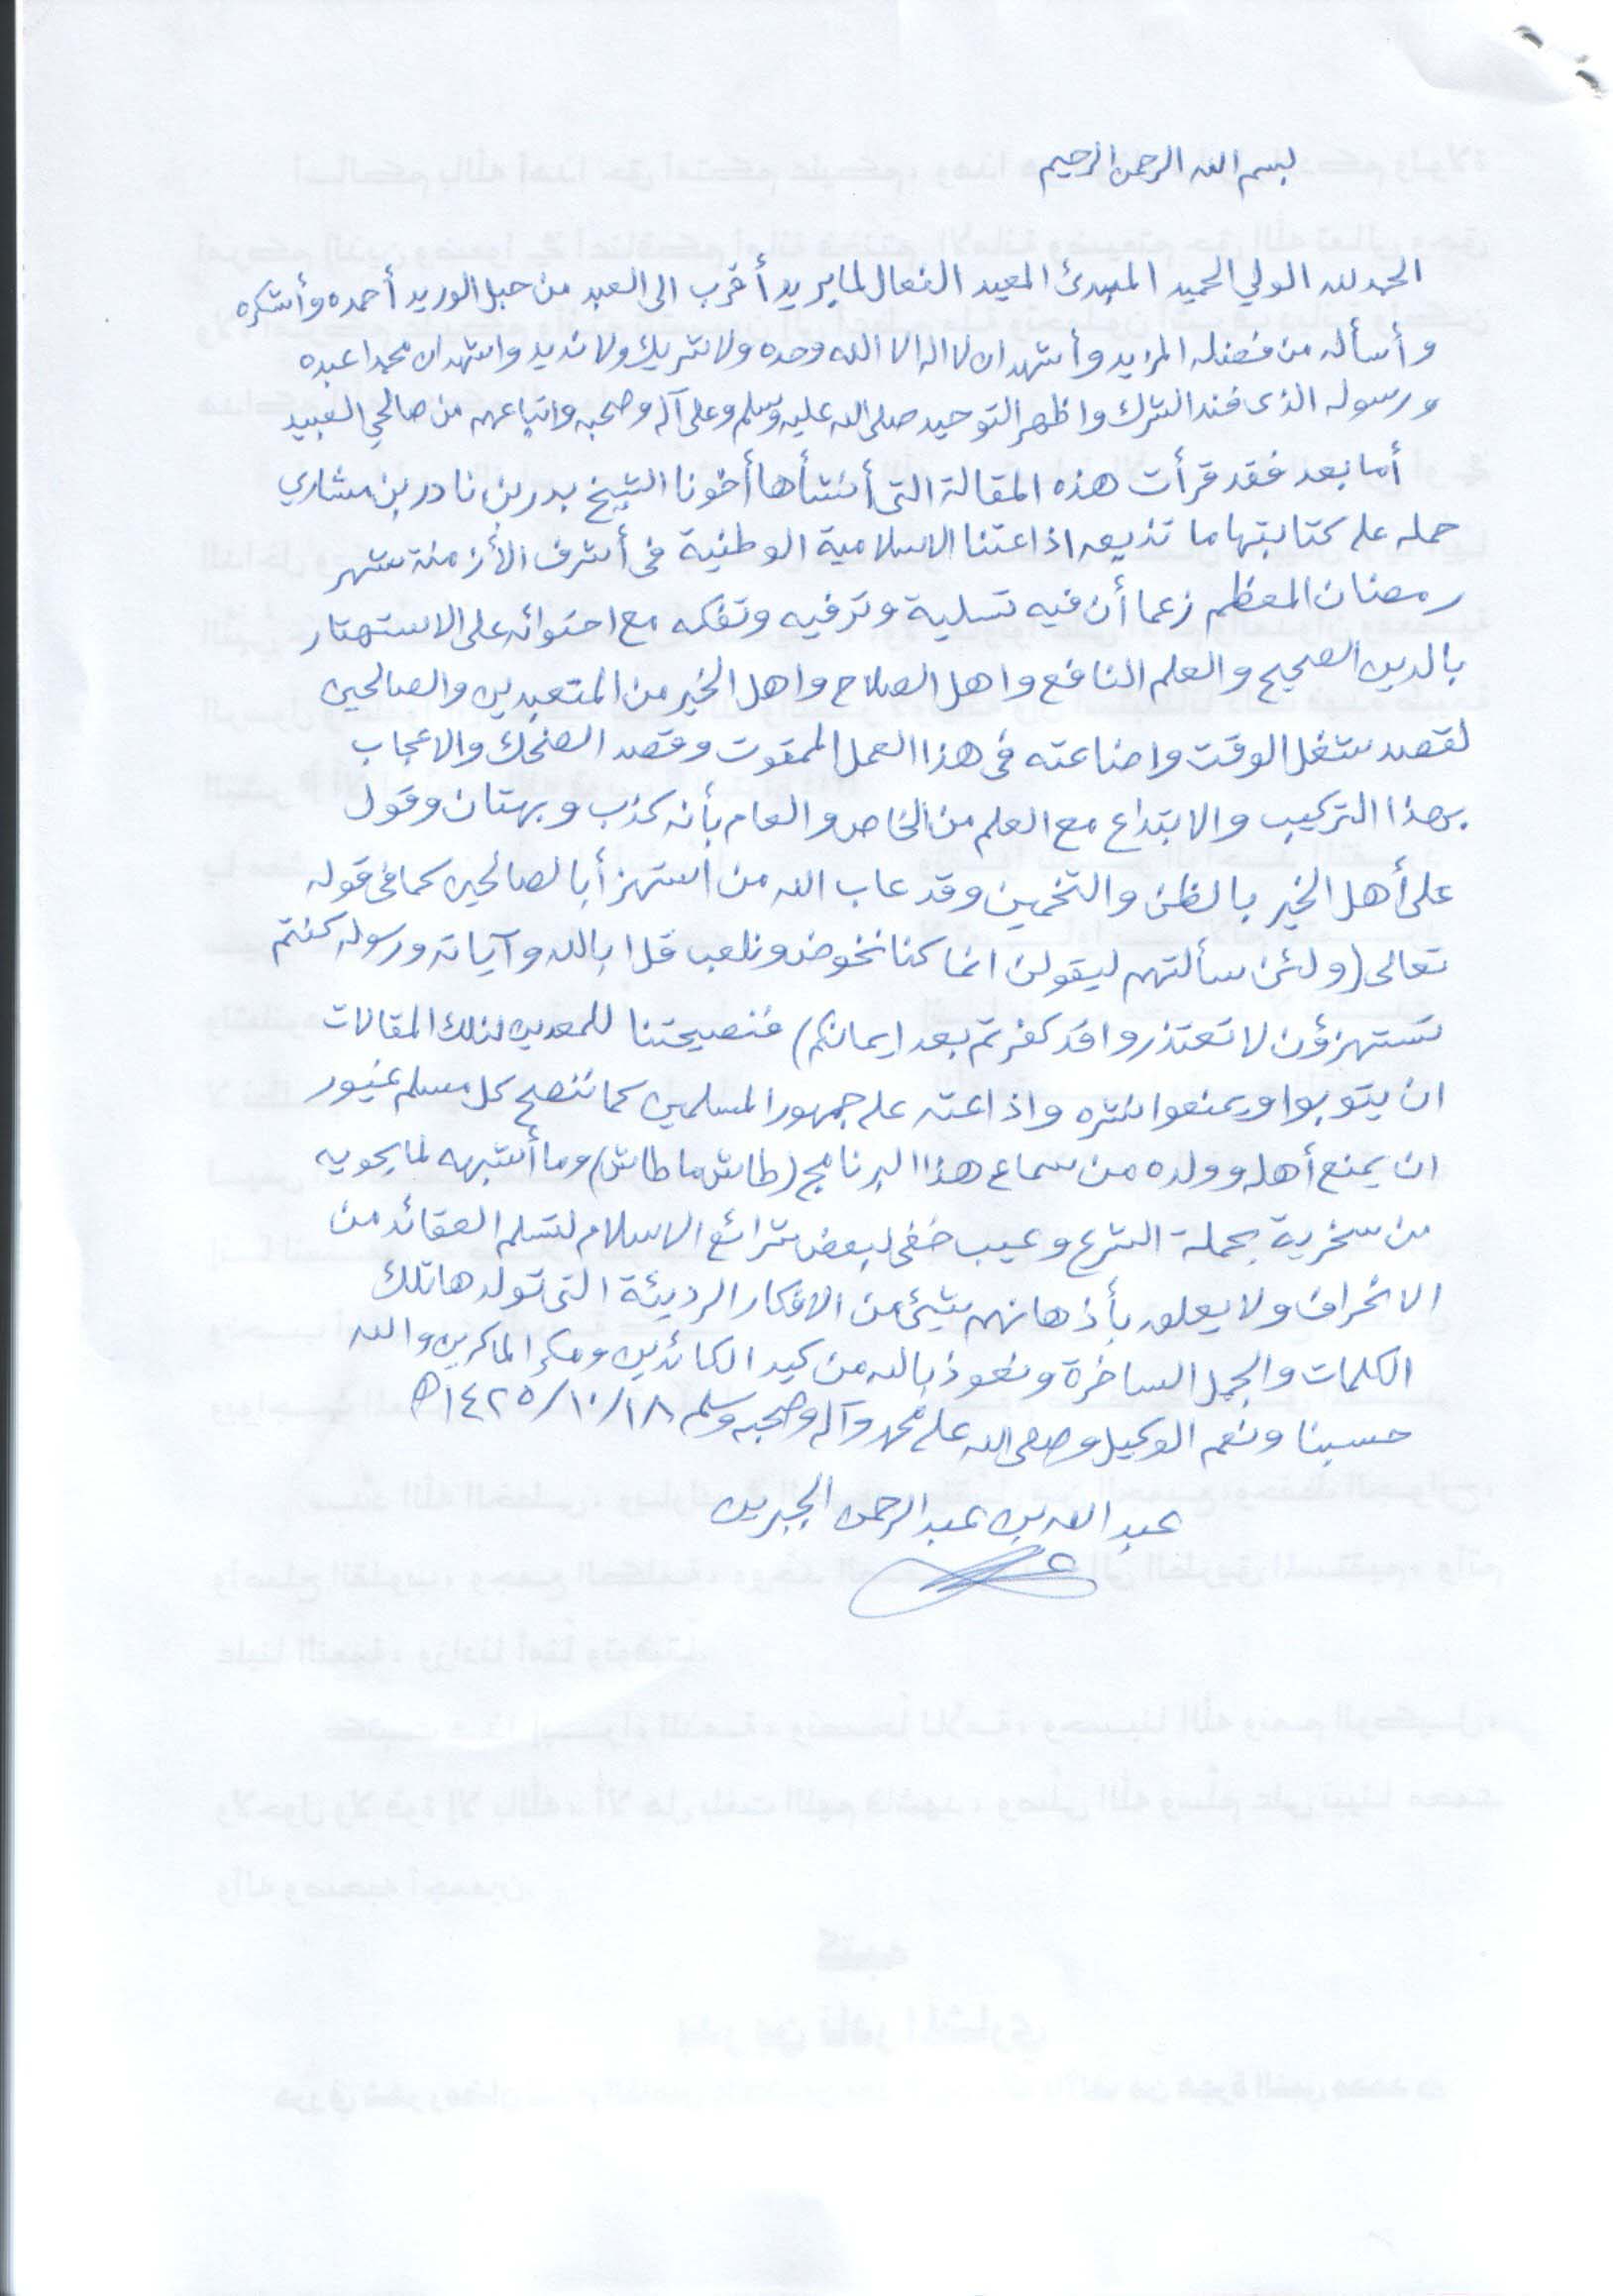 بسم الله الرحمن الرحيم
الحمد لله الولي الحميد المبدئ المعيد الفعال لما يريد أقرب الى العبد من حبل الوريد أحمده وأشكره
وأسأله من فضله المزيد وأشهد ان لا اله الا الله وحده ولا شريك ولا نديد واشهد ان محمدا عبده
ورسوله الذى فند الشرك واظهر التوحيد صلى الله عليه وسلم وعلى آله وصحبه واتباعهم من صالحي العبيد
أما بعد فقد قرأت هذه المقالة التى أنشأها أخونا الشيخ بدر بن نادر بن مشاري
حمله على كتابتها ما تذيعه اذاعتنا الاسلامية الوطنية فى أشرف الأزمنة شهر
رمضان المعظم زعما أن فيه تسلية وترفيه وتفكه مع احتوائه على الاستهتار
بالدين الصحيح والعلم النافع واهل الصلاح واهل الخير من المتعبدين والصالحين
لقصد شغل الوقت واضاعته فى هذا العمل الممقوت وقصد الضحك والاعجاب
بهذا التركيب والابتداع مع العلم من الخاص والعام بأنه كذب وبهتان وقول
على أهل الخير بالظن والتخمين وقد عاب الله من استهزأ بالصالحين كما فى قوله
تعالى (ولئن سألتهم ليقولن انما كنا نخوض ونلعب قل ا بالله وآياته ورسوله كنتم
تستهزؤن لا تعتذروا قد كفرتم بعد ايمانكم) فنصيحتنا للمعدين لذلك المقالات
ان يتوبوا ويمنعوا نشره واذاعته على جمهور المسلمين كما ننصح كل مسلم غيور
ان يمنع أهله وولده من سماع هذا البرنامج (طاش ما طاش) وما أشبهه لما يحويه
من سخرية بحملة الشرع وعيب خفى لبعض شرائع الاسلام لتسلم العقائد من
الانحراف ولا يعلق بأذهانهم شيئ من الافكار الرديئة التى تولدها تلك
الكلمات والجمل الساخرة ونعوذ بالله من كيد الكائدين ومكر الماكرين والله
حسبنا ونعم الوكيل وصلى الله على محمد وآله وصحبه وسلم ١٤٢٥/١٠/١٨ه
عبد الله بن عبد الرحمن الجبرين